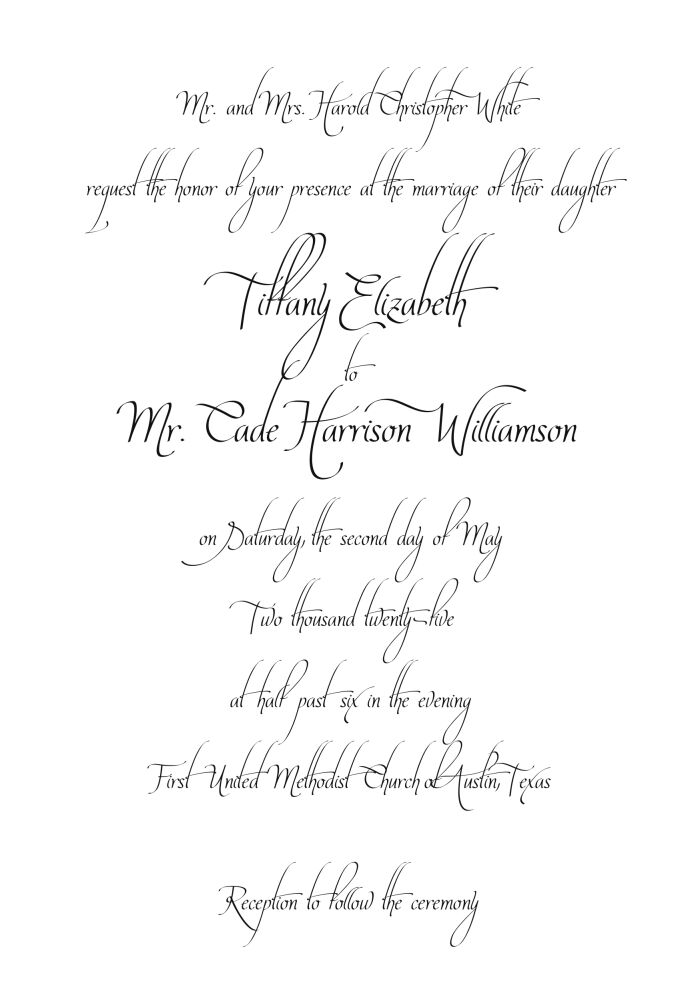 Mr. and Mrs. Harold Christopher White
request the honor of your presence at the marriage of their daughter
Tiffany Elizabeth
to
Mr. Cade Harrison Williamson
on Saturday, the second day of May
Two thousand twenty-five
at half past six in the evening
First United Methodist Church of Austin, Texas
Reception to follow the ceremony